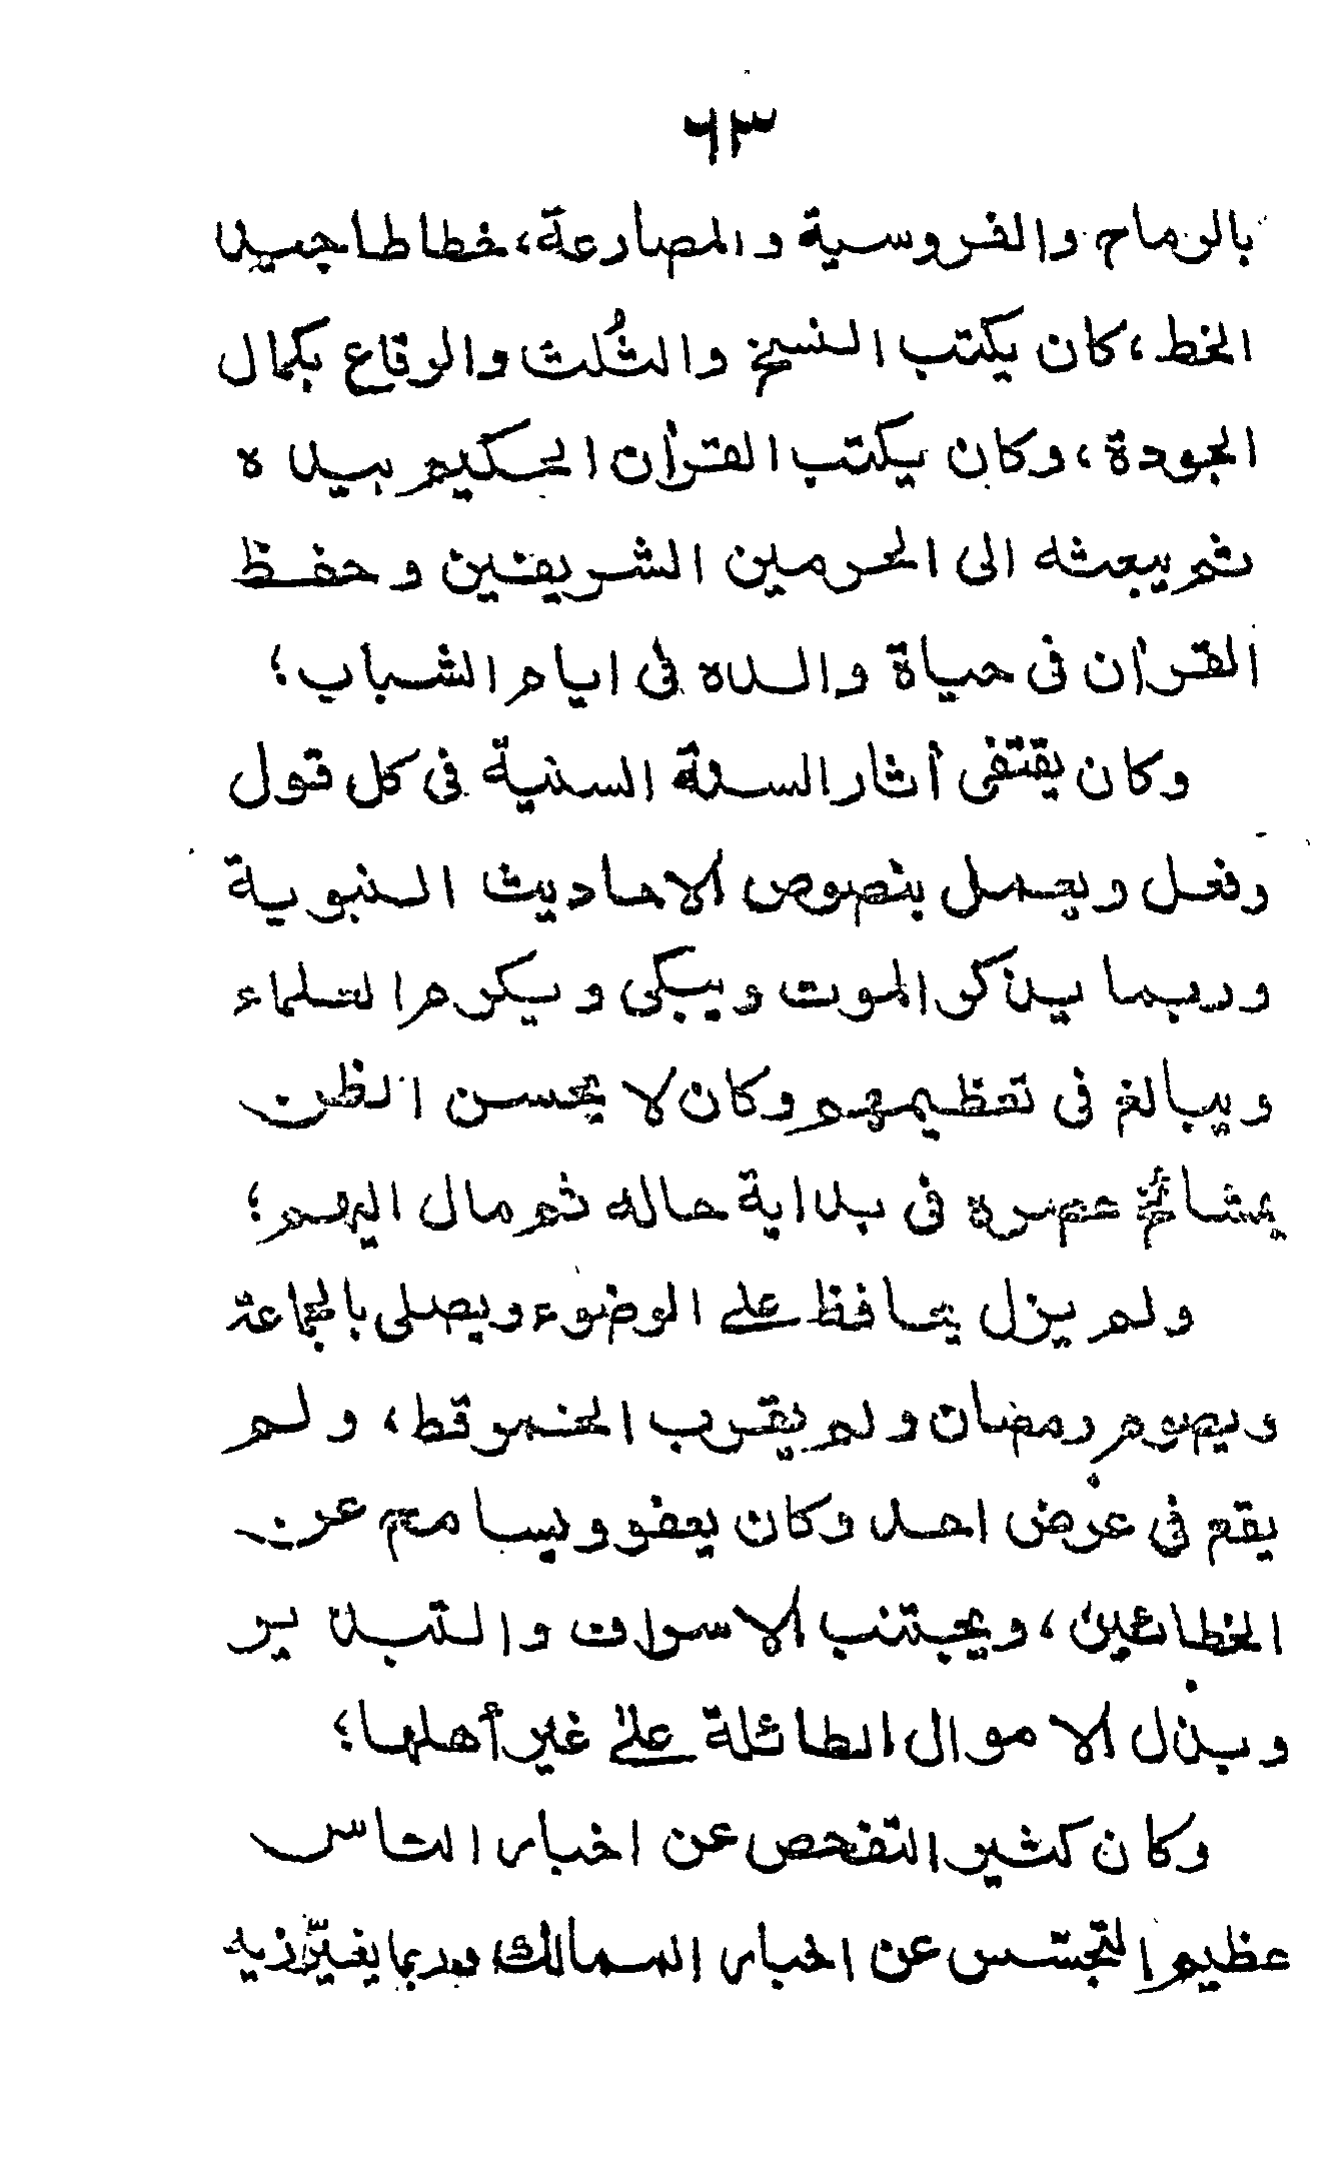 ٦٣
بالرماح والفروسية والمصارعة، خطاطا جيد
الخط، كان يكتب النسخ والثُلث والرقاع بكمال
الجودة، وكان يكتب القرأن الحكيم بيده
ثم يبعثه الى الحرمين الشريفين وحفظ
القرأن فى حياة والده فى ايام الشباب؛
وكان يقتفى أثار السنة السنية فى كل قول
وفعل ويعمل بنصوص الاحاديث النبوية
وربما يذكر الموت ويبكى ويكرم العلماء
ويبالغ فى تعظيمهم وكان لا يحسن الظن
بمشائخ عصره فى بداية حاله ثم مال اليهم؛
ولم يزل يحافظ على الوضوء ويصلى بالجماعة
ويصوم رمضان ولم يقرب الخمر قط، ولم
يقع فى عرض احد وكان يعفو ويسامح عن
الخطائين، ويجتنب الاسراف والتبذير
وبذل الاموال الطائلة على غير أهلها؛
وكان كثير التفحص عن اخبار الناس
عظيم التجسّس عن اخبار الممالك، وربما يغيّر زيه